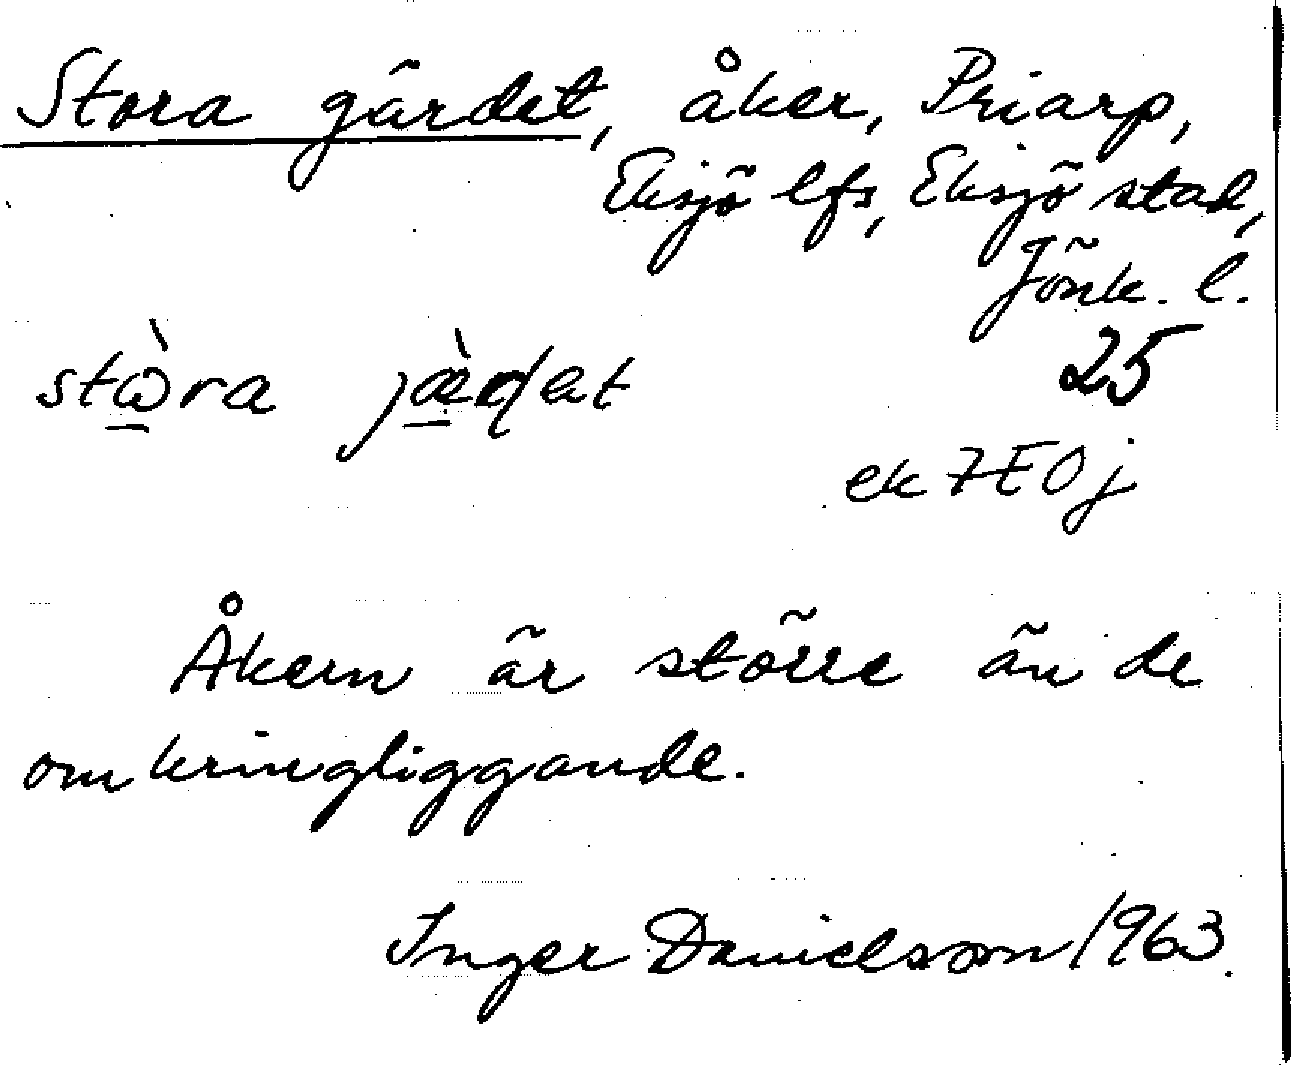 Stora gärdet, åker, Priarp,
Eksjö lfs, Eksjö stad,
Jönk. l.
25
stὼ̲ra jæ̲̀ɖet
ek 7E0j
Åkern är större än de
omkringliggande.
Inger Danielsson 1963.